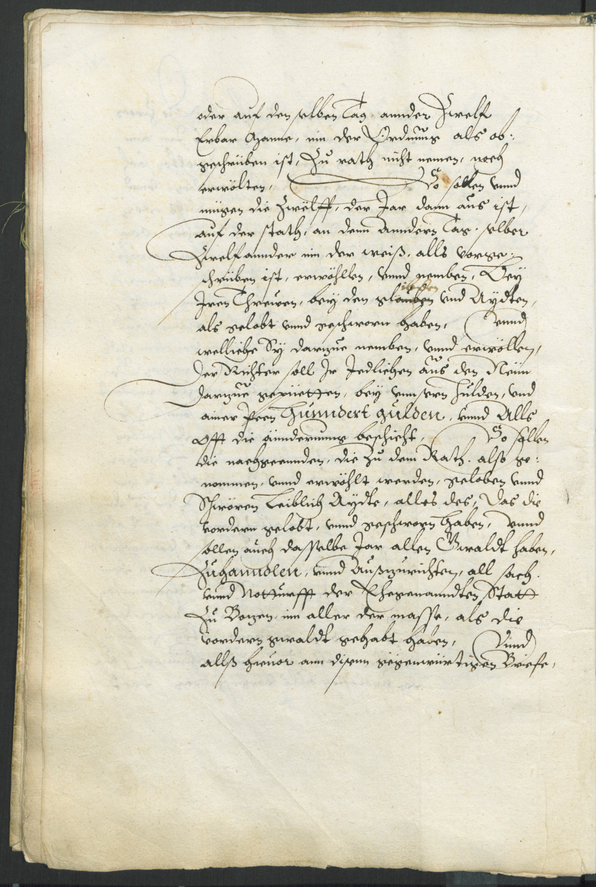 oder auf den selben Tag, annder Zwelf
Erbar Manne, inn der Ordnung als ob:
geschriben ist, Zu rath nicht nemen, noch
erwölten, So sollen vnnd
mügen die Zwelff, der Jar dann aus ist,
auf der statt, an dem anndern Tag, selber
Zwelf annder inn der weiß, alls vorge:
schriben ist, erwöhlen, vnnd nemben, Bey
Iren Threwen, bey den gelouben vnd Aydten,
als gelobt vnnd geschworn haben, Vnnd
welliche Sy darzue nemben, vnnd erwöllen,
Der Richter soll Ir Jedlichen aus den Neun
darzue genietten, bey vnnsern hulden, vnd
ainer Peen Hunndert gulden, vnnd Alls
Offt die ännderunng beschicht, So sollen
die nachgeennden, die zu dem Rath, also ge:
nommen, vnnd erwöhlt werden, geloben vnnd
Schwören Leiblich Aydte, alles des, Das die
vordern gelobt, vnnd geschworn haben, vnnd
sollen auch dasselbe Jar allen Gwaldt haben,
Zuhanndlen, vnnd Außzurichten, all sach,
vnnd Notturfft der Ehegenanndten Statt
Zu Bozen, inn aller der masse, als die
vordern gwaldt gehabt haben, Vnnd
allß hieuor ann disem gegenwürtigen Briefe,